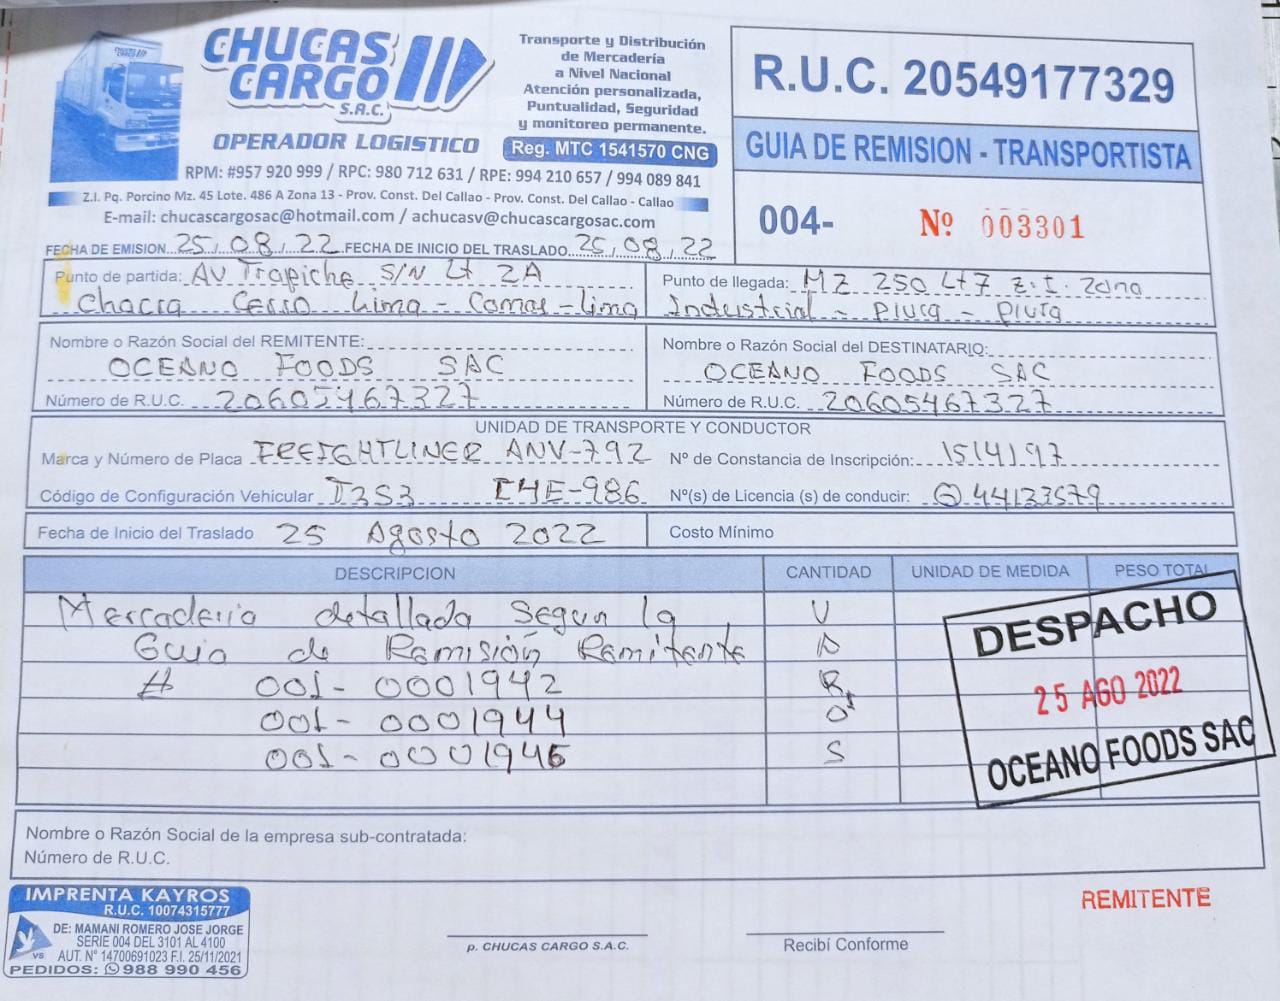 CHUCAS CARGO S.A.C.
OPERADOR LOGISTICO
Transporte y Distribución
de Mercadería
a Nivel Nacional
Atención personalizada,
Puntualidad, Seguridad
y monitoreo permanente.
Reg. MTC 1541570 CNG
RPM: #957 920 999 / RPC: 980 712 631 / RPE: 994 210 657 / 994 089 841
Z.I. Pq. Porcino Mz. 45 Lote. 486 A Zona 13 - Prov. Const. Del Callao - Prov. Const. Del Callao - Callao
E-mail: chucascargosac@hotmail.com / achucasv@chucascargosac.com
R.U.C. 20549177329
GUIA DE REMISION - TRANSPORTISTA
004- Nº 003301
FECHA DE EMISION 25/08/22 FECHA DE INICIO DEL TRASLADO 25/08/22
Punto de partida: AV Trapiche S/N Lt 2A
Chacra Cerro Lima - Comas - Lima
Punto de llegada: MZ 250 Lt 7 Z.I. Zona
Industrial - Piura - Piura
Nombre o Razón Social del REMITENTE:
OCEANO FOODS SAC
Número de R.U.C. 20605467327
Nombre o Razón Social del DESTINATARIO:
OCEANO FOODS SAC
Número de R.U.C. 20605467327
UNIDAD DE TRANSPORTE Y CONDUCTOR
Marca y Número de Placa FREIGHTLINER ANV-792 Nº de Constancia de Inscripción: 1514197
Código de Configuración Vehicular T3S3 C4E-986 Nº(s) de Licencia (s) de conducir: Q44133579
Fecha de Inicio del Traslado 25 Agosto 2022 Costo Mínimo
DESCRIPCION CANTIDAD UNIDAD DE MEDIDA PESO TOTAL
Mercaderia detallada Segun la V
Guia de Remisión Remitente A
# 001-0001942 R
001-0001944 O
001-0001946 S
DESPACHO
25 AGO 2022
OCEANO FOODS SAC
Nombre o Razón Social de la empresa sub-contratada:
Número de R.U.C.
IMPRENTA KAYROS
R.U.C. 10074315777
DE: MAMANI ROMERO JOSE JORGE
SERIE 004 DEL 3101 AL 4100
AUT. N° 14700691023 F.I. 25/11/2021
PEDIDOS: 988 990 456
p. CHUCAS CARGO S.A.C.
Recibí Conforme
REMITENTE